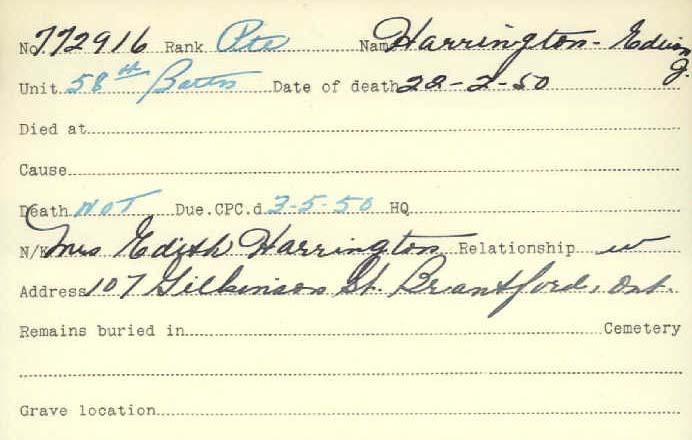 No. 772916 Rank Pte Name Harrington - Edwin J.
Unit 58th Battn Date of death 22-2-50
Died at
Cause
Death NOT Due. CPC.d 3-5-50 HQ
N/K Mrs Edith Harrington Relationship w
Address 107 Gilkinson St. Brantford, Ont.
Remains buried in Cemetery
Grave location